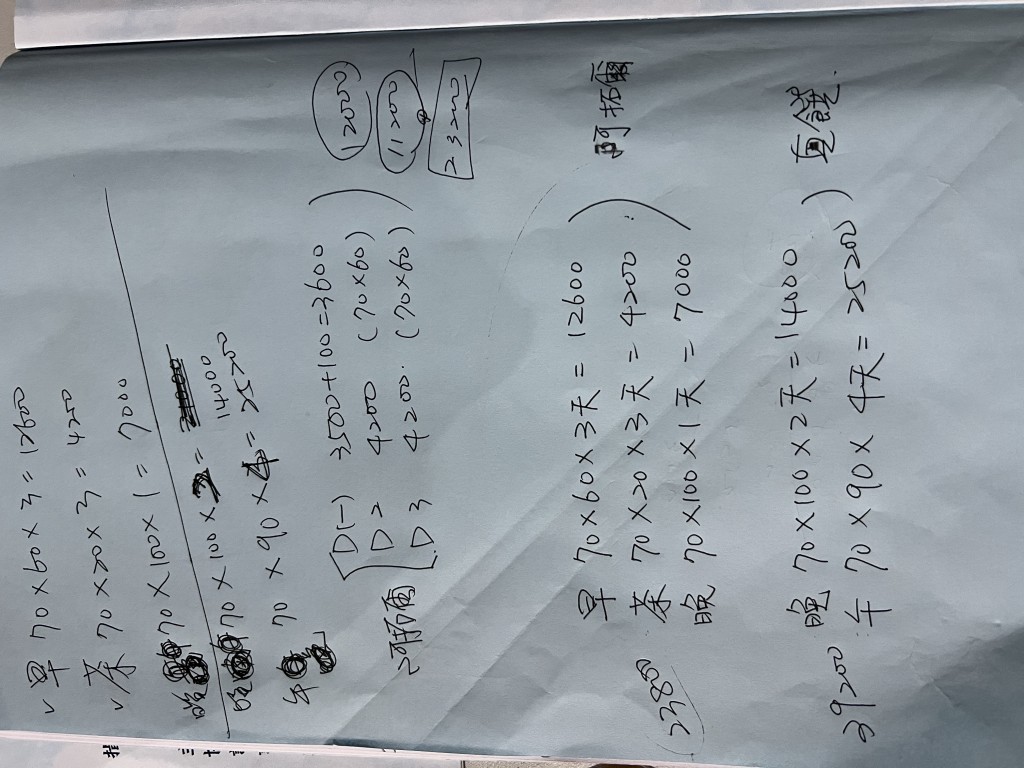 ✓ 早 70×60×3=12600
茶 70×20×3=4200
✓ 晚 70×100×1= 7000
晚 70×100×2= 14000
午 70×90×4=25200
D(一) 3500+100=3600
D2 4200 (70×60)
D3 4200 (70×60)
12000
11200
23200
阿拓爾
早 70×60×3天=12600
茶 70×20×3天=4200
晚 70×100×1天=7000
阿拓爾
23800
晚 70×100×2天=14000
午 70×90×4天=25200
39200